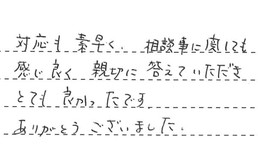 対応も素早く、相談事に関しても
感じ良く親切に答えていただき
とても良かったです
ありがとうございました。